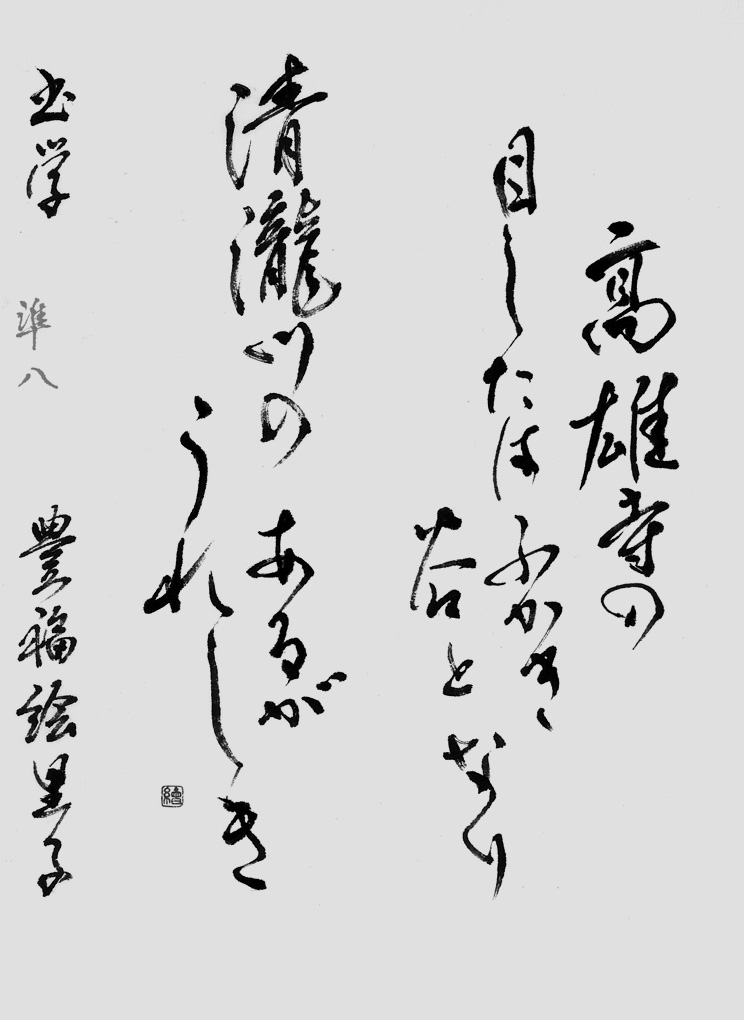 高雄寺の
目したはふかき
谷となり
清瀧川の
あるが
うれしき
書学 準八 豊福絵里子
繪